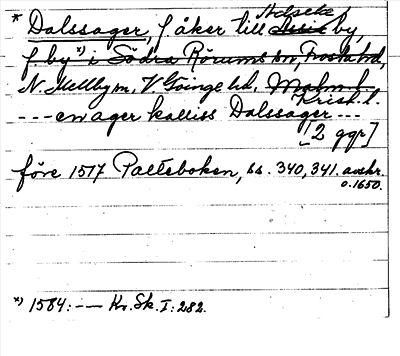 * Dalssager, f åker till Adseke by,
f. by *) i Södra Rörums sn, Frosta hd,
N. Mellby sn, V Göinge hd, Malm. l.
Krist. l.
--- en ager kalliss Dalssager ---
[2 ggr]
före 1517 Palteboken, ss. 340, 341. avskr.
o. 1650.
*) 1584: -—- Kr. Sk. I: 282.